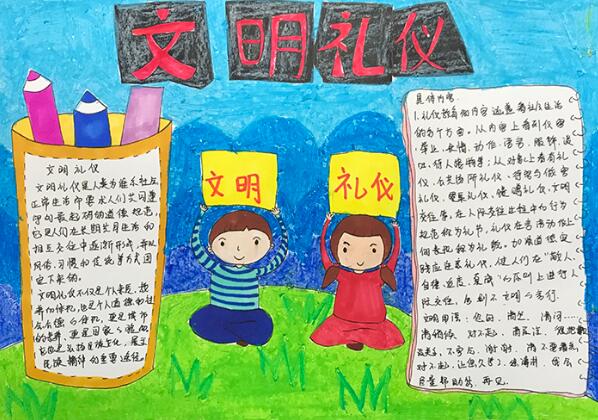 文明礼仪
文明
礼仪
文明礼仪
文明礼仪是人类为维系社会
正常生活而要求人们共同遵
守的最起码的道德规范,
它是人们在长期共同生活和
相互交往中逐渐形成,并以
风俗、习惯和传统等方式固
定下来的。
文明礼仪不仅是个人素质、教
养的体现,也是个人道德和社
会公德的体现。更是城市
的脸面,更是国家的脸面
具体内容:
1.礼仪教育的内容涵盖着社会生活
的各个方面。从内容上看有仪容、
举止、表情、服饰、谈
吐、待人接物等;从对象上看有个人礼
仪、公共场所礼仪、待客与做客
礼仪、餐桌礼仪、馈赠礼仪、文明
交往等。在人际交往过程中的行为
规范称为礼节,礼仪在言语动作上
的表现称为礼貌。加强道德实
践应注意礼仪,使人们在“敬人、
自律、适度、真诚”的原则上进行人
际交往,告别不文明的言行。
文明用语:您好、请坐、请问……
请稍候、对不起、请原谅、很抱歉
没关系、不客气、谢谢、请不要着急
对不起,让您久等了、
尽量帮助您、再见。